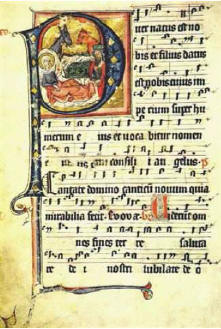 uer natus est no
bis et filius datus
est nobis cuius im
per eium super hu
merum e ius et uoca bitur nomen
e consili i an gelus
antate domino canticū nouum quia
mirabilia fecit Evovae om
nes fines ter re saluta
re de i nostri iubilate de o